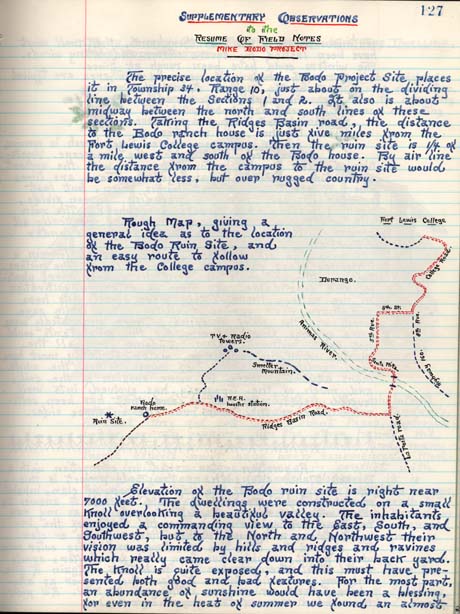 127
SUPPLEMENTARY OBSERVATIONS
to the
RESUME OF FIELD NOTES
MIKE BODO PROJECT
The precise location of the Bodo Project Site, places
it in Township 34. Range 10, just about on the dividing
line between the Sections 1 and 2. It also is about
midway between the north and south, lines of these
sections. Taking the Ridges Basin road, the distance
to the Bodo ranch house is just five miles from the
Fort Lewis College campus. Then the ruin site is 1/4 of
a mile west and south of the Bodo house. By air line
the distance from the campus to the ruin site would
be somewhat less, but over rugged country.
Rough Map, giving a
general idea as to the location
of the Bodo Ruin Site, and
an easy route to follow
from the College campus.
Fort Lewis College
College Road.
Durango.
Animas River.
T.V. & Radio
Towers.
Smelter
Mountain.
Bodo
ranch home.
Ruin Site.
Ridges Basin Road.
Elevation of the Bodo ruin site is right near
7000 feet. The dwellings were constructed on a small
Knoll overlooking a beautiful valley. The inhabitants
enjoyed a commanding view to the East, South, and
Southwest, but to the North and Northwest their
vision was limited by hills and ridges and ravines
which really came clear down into their back yard.
The Knoll is quite exposed, and this must have pre-
sented both good and bad features. For the most part,
an abundance of sunshine would have been a blessing,
for even in the heat of summer we found an almost